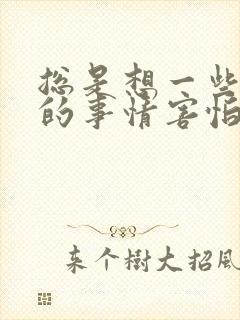 总是想一些
的事情害怕
来个树大招风